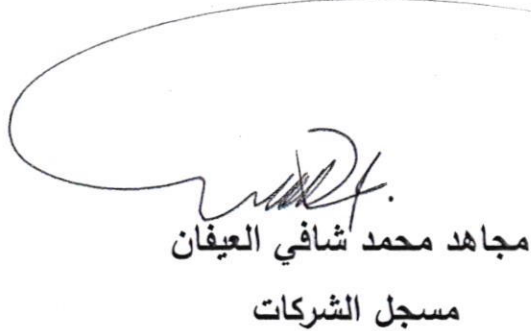 مجاهد محمد شافي العيفان
مسجل الشركات